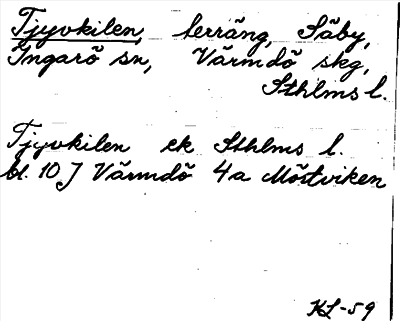 Tjyvkilen, terräng, Säby,
Ingarö sn, Värmdö skg,
Sthlms l.
Tjyvkilen ek Sthlms l.
bl. 10 J Värmdö 4a Mörtviken
KL-59